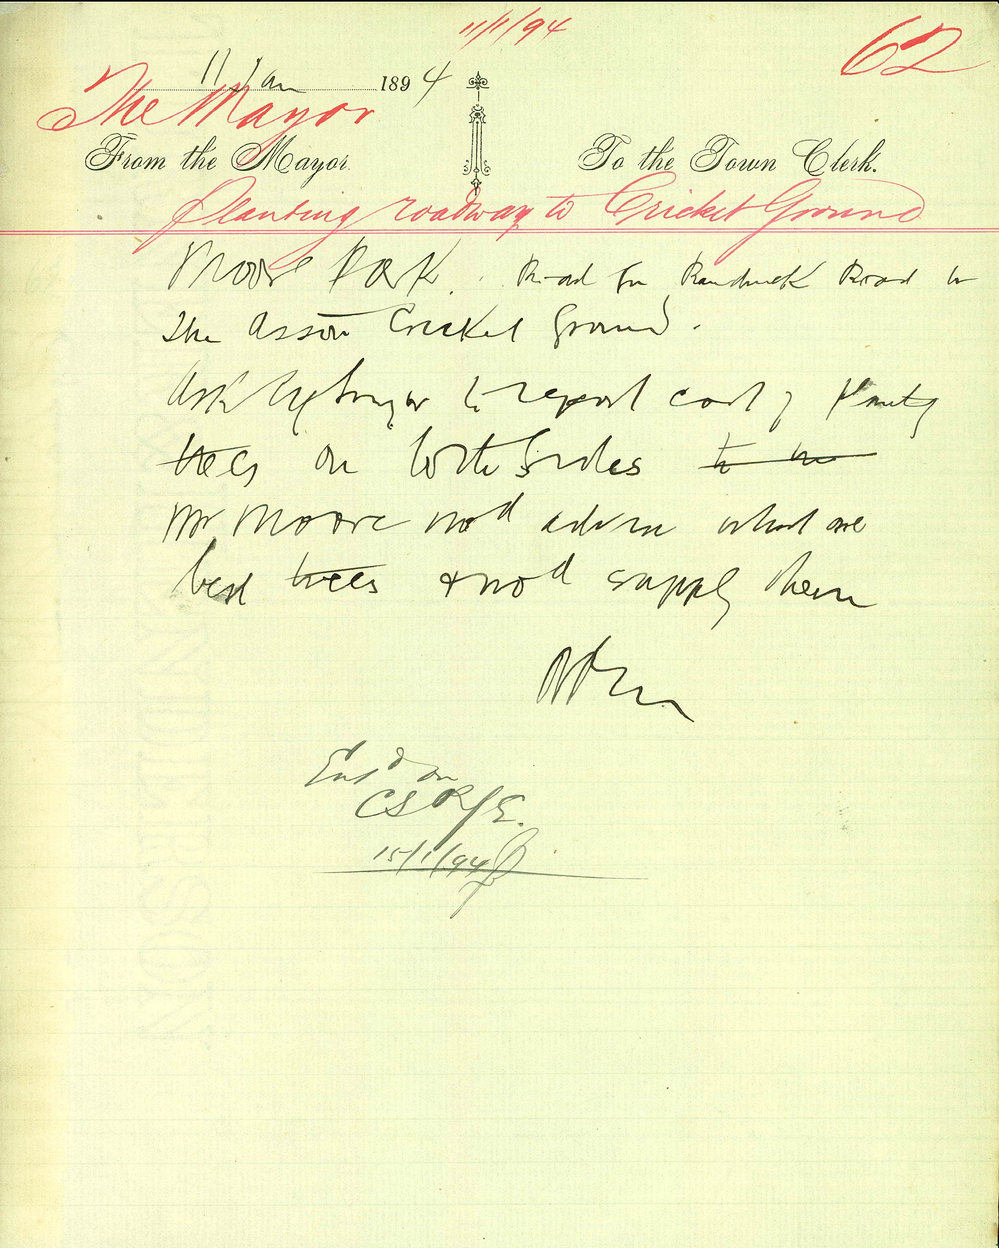 11/1/94
62
11 Jan 1894
The Mayor
From the Mayor. To the Town Clerk.
Planting roadway to Cricket Ground
Moore Park. Road fm Randwick Road to
the Asson Cricket Ground.
Ask Cy Survyor to report cost of planting
trees on both Sides to the
Mr Moore wod advise what are
best trees & wod supply them
Ent'd on
CS
15/1/94